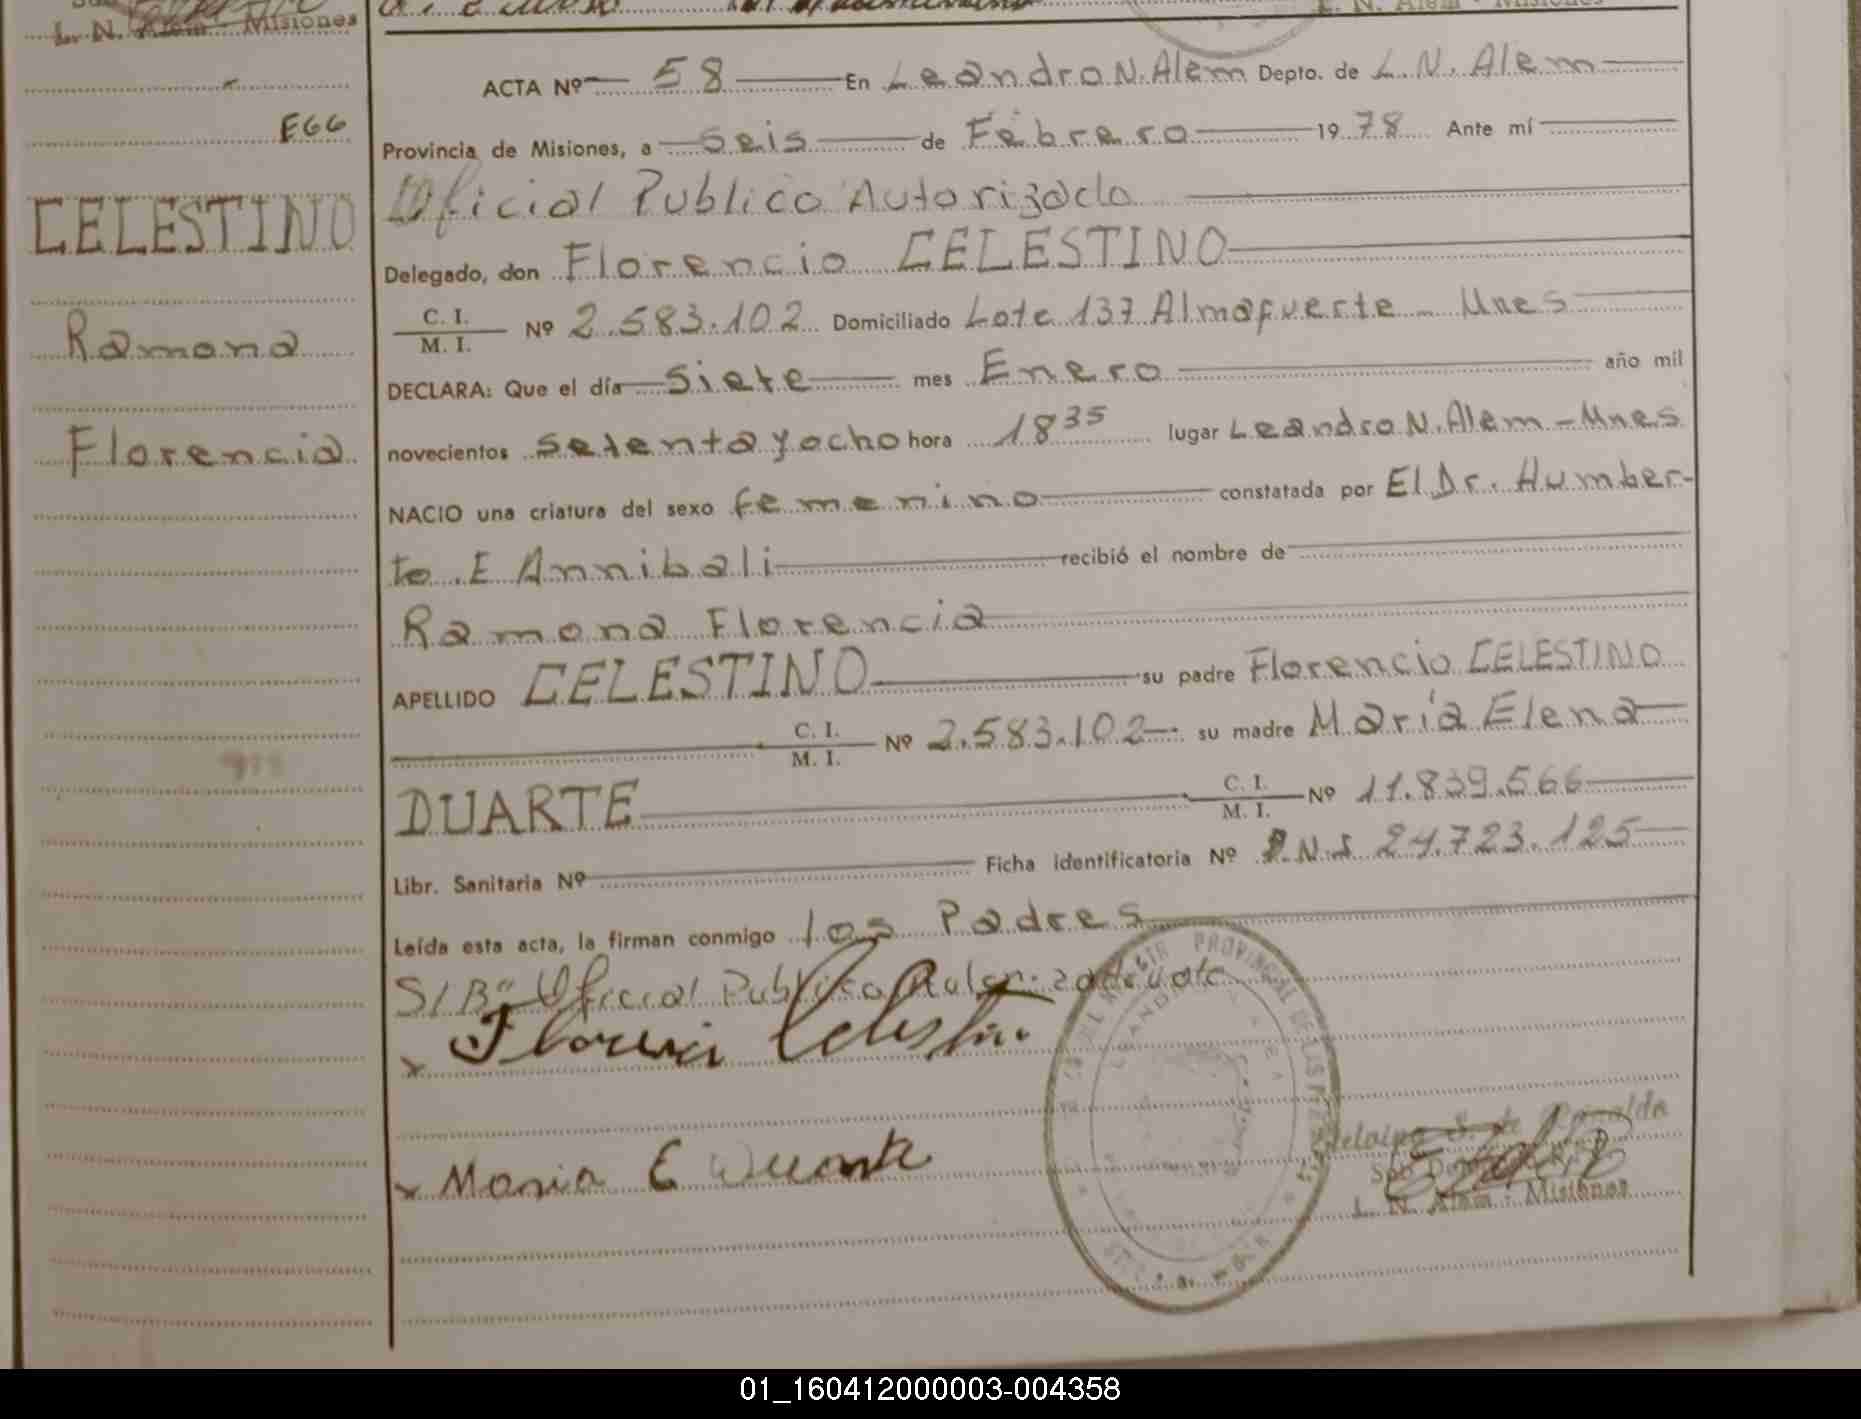 L. N. Alem - Misiones
L. N. Alem - Misiones
ACTA Nº 58 En Leandro N. Alem Depto. de L. N. Alem
E66
Provincia de Misiones, a seis de Febrero 1978 Ante mí
Oficial Publico Autorizado
CELESTINO
Delegado, don Florencio CELESTINO
C. I.
M. I. Nº 2.583.102 Domiciliado Lote 137 Almafuerte - Mnes
Ramona
DECLARA: Que el día siete mes Enero año mil
Florencia
novecientos setenta y ocho hora 18 35 lugar Leandro N. Alem - Mnes
NACIO una criatura del sexo femenino constatada por El Dr. Humber-
to E Annibali recibió el nombre de
Ramona Florencia
APELLIDO CELESTINO su padre Florencio CELESTINO
C. I.
M. I. Nº 2.583.102 su madre María Elena
DUARTE C. I.
M. I. Nº 11.839.566
Libr. Sanitaria Nº Ficha identificatoria Nº D.N.I 24.723.125
Leída esta acta, la firman conmigo los Padres
S/Bº Oficial Publico Autorizado vale
x Florencio Celestino
x Maria E Duarte
L. N. Alem - Misiones
01_160412000003-004358